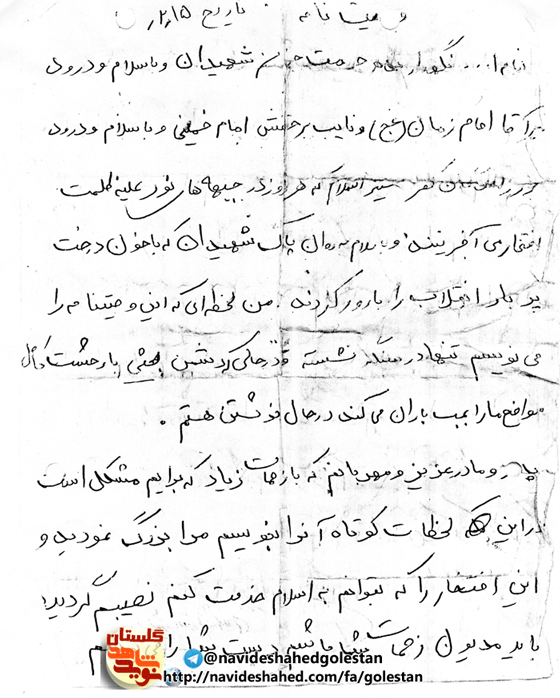 وصیت نامه تاریخ ۲،۱۵
بنام ا... نگهدار حرمت خون شهیدان و با سلام و درود
بر آقا امام زمان (عج) و نایب برحقش امام خمینی و با سلام و درود
بر رزمندگان کفر ستیز اسلام که هر روز در جبهه های نور علیه ظلمت
افتخار می آفرینند و با سلام به روان پاک شهیدان که با خون درخت
پر بار انقلاب را بارور کردند. من لحظه ای که این وصیتنامه را
می نویسم تنها در سنگر نشسته و در حالی که دشمن بعثی با وحشت کامل
مواضع ما را بمب باران می کند در حال نوشتن هستم.
پدر و مادر عزیز و مهربانم که با زحمات زیاد که برایم مشکل است
در این لحظات کوتاه آنرا بنویسم مرا بزرگ نمودید و
این افتخار را که بتوانم به اسلام خدمت کنم نصیبم گردید
باید مدیون زحمات شما باشم دست شما را
گلستان
نوید شاهد
@navideshahedgolestan
http://navideshahed.com/fa/golestan